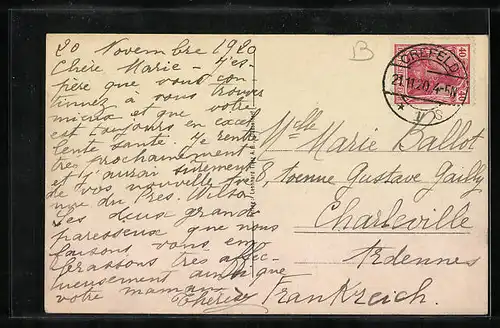 20 Novembre 1920
Chère Marie - J'es-
père que vous con-
tinuez à vous trouver
mieux et que votre
est toujours en excel
lente santé. Je rentre
très prochainement
et j'aurai sûrement
de vos nouvelles
nue du Pres. Wilson
Les deux grandes
paresseuses que nous
faisons, vous em
brassons très affec-
tueusement ainsi que
votre maman
Thérèse
B
CREFELD
21.11.20. 4-5N
Melle Marie Ballot
8, avenue Gustave Gailly
Charleville
Ardennes
Frankreich.